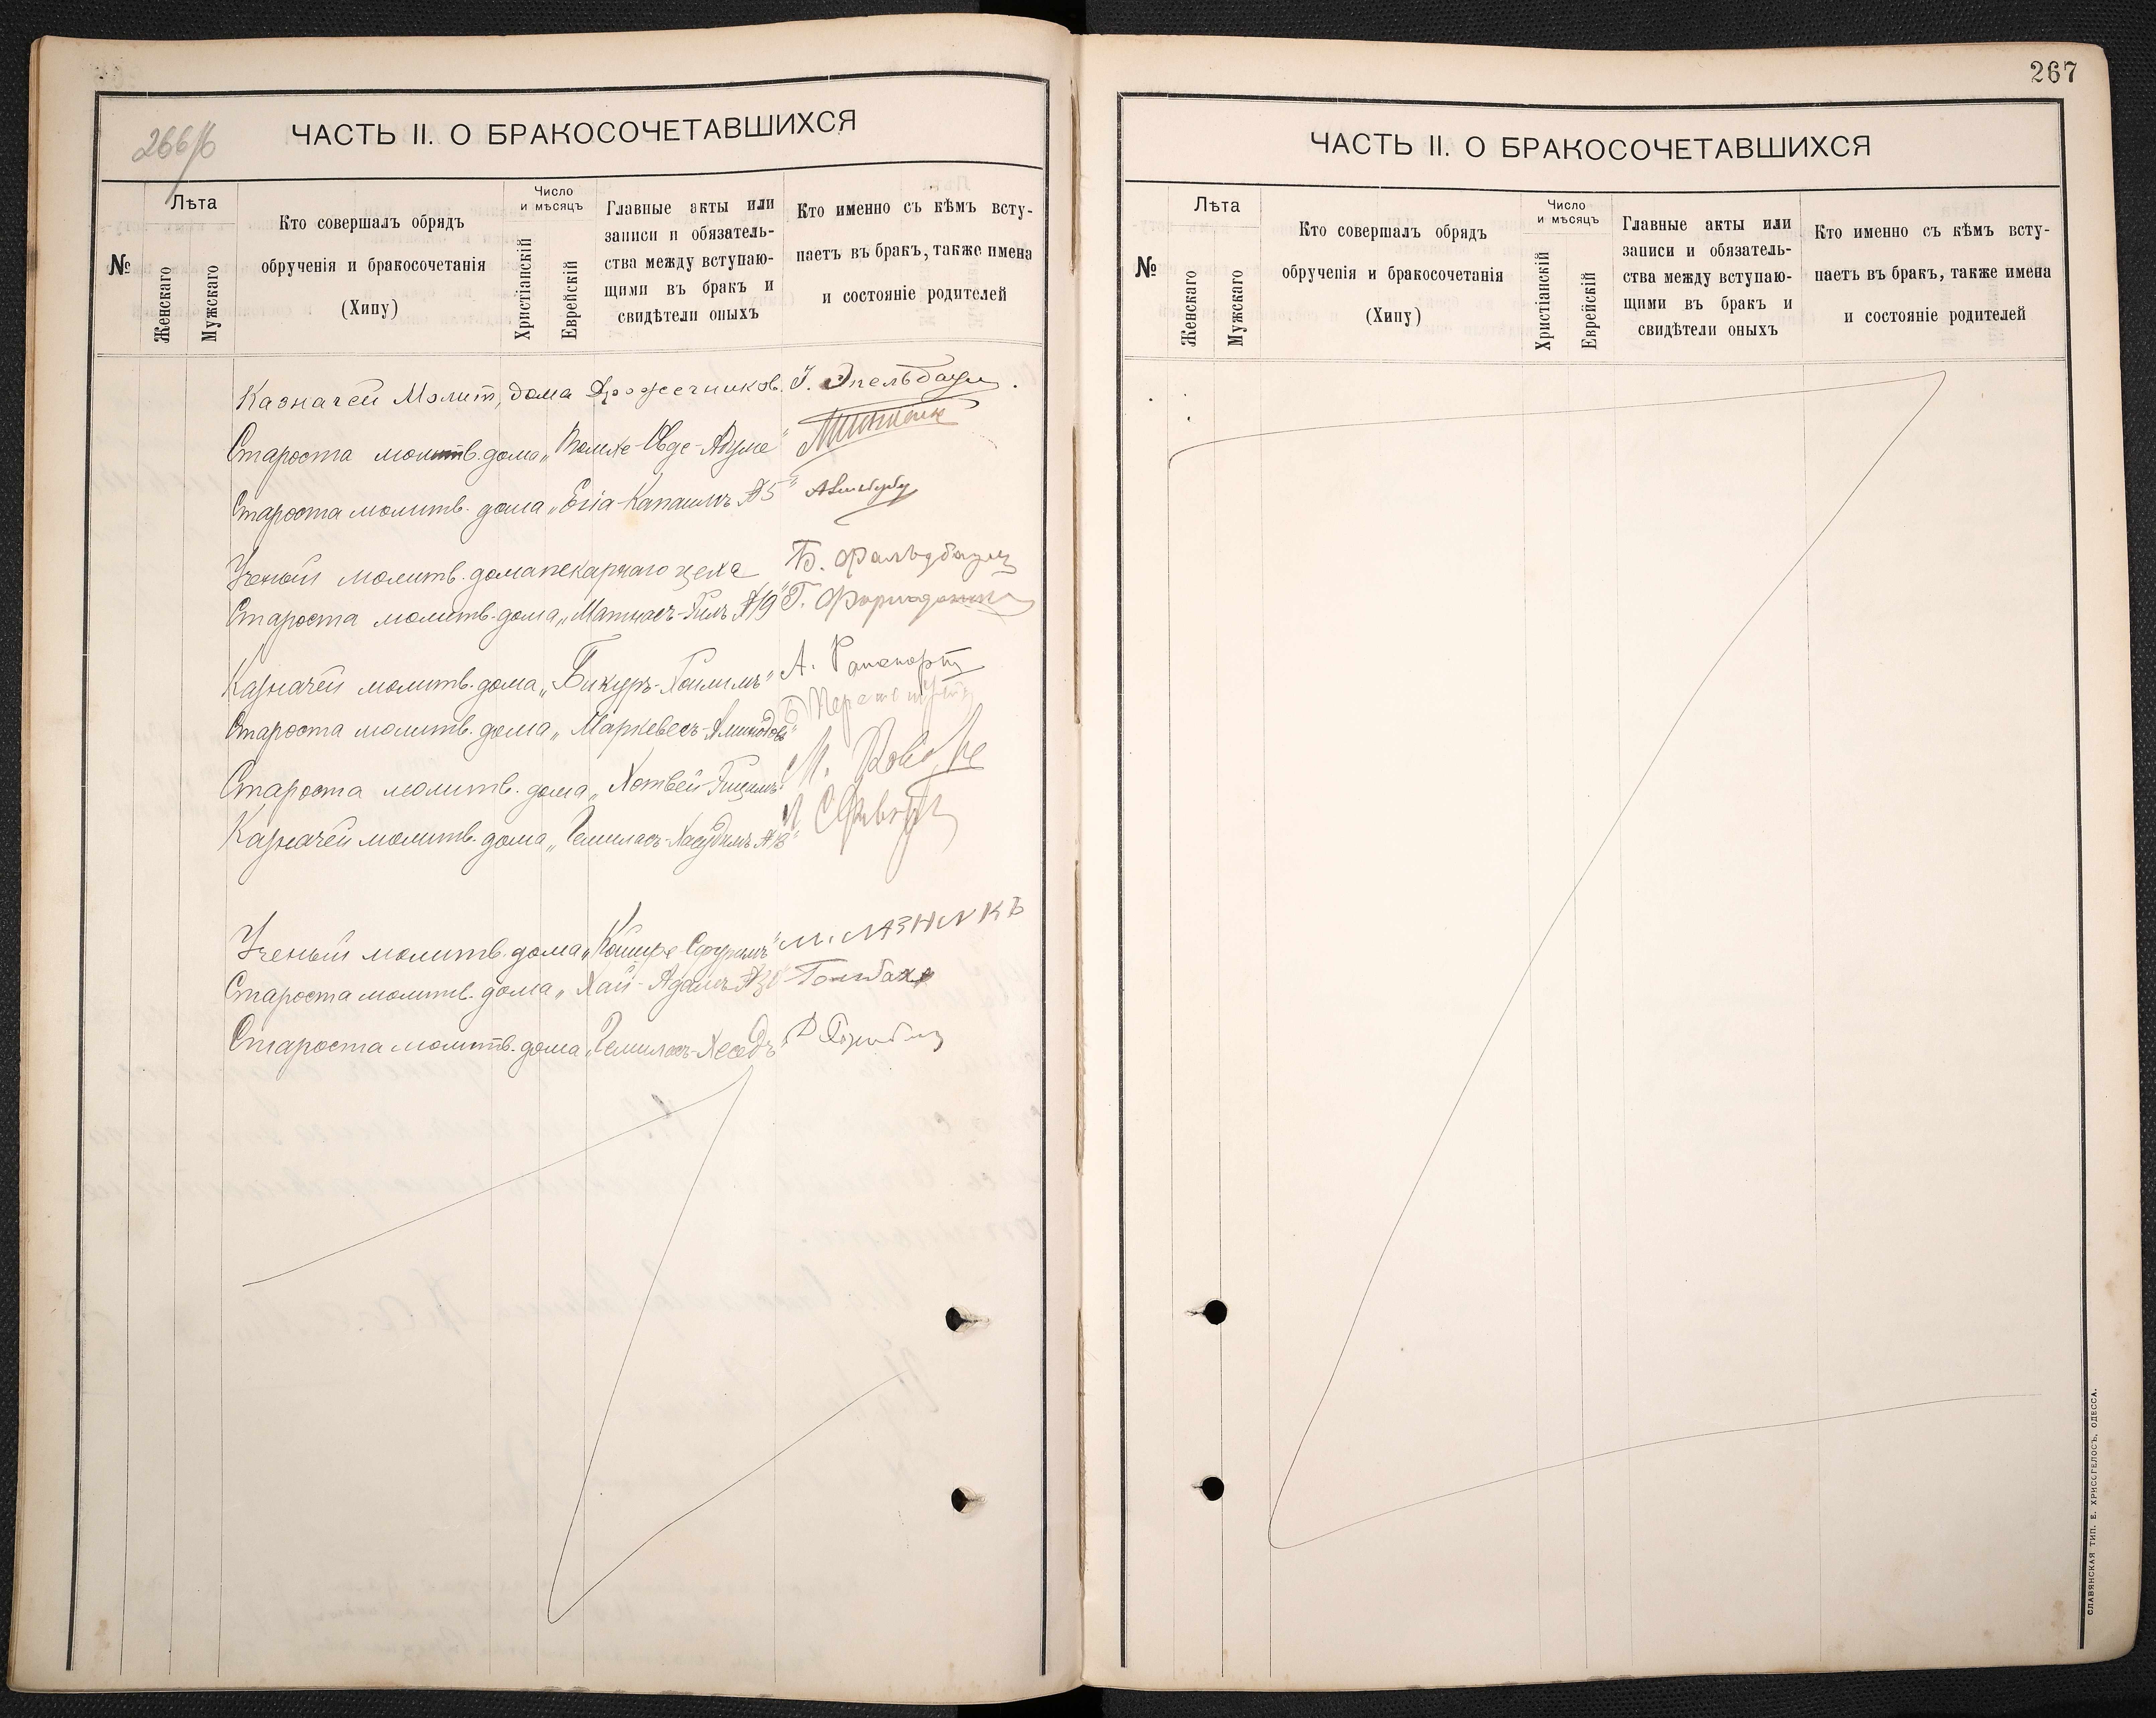 266/б
ЧАСТЬ II. О БРАКОСОЧЕТАВШИХСЯ
№
Лѣта
Женскаго
Мужскаго
Кто совершалъ обрядъ
обрученія и бракосочетанія
(Хипу)
Число
и мѣсяцъ
Христіанскій
Еврейскій
Главные акты или
записи и обязатель-
ства между вступаю-
щими въ бракъ и
свидѣтели оныхъ
Кто именно съ кѣмъ всту-
паетъ въ бракъ, также имена
и состояніе родителей
Казначей Молит. дома Дрожечников. І. Эпельбаум.
Староста молитв. дома
Староста молитв. дома „Егіа-Капаимъ №5"
Ученый молитв. дома пекарнаго цеха Б. Фальдбаум
Староста молитв. дома №19" Г.
Казначей молитв. дома „Бикуръ-Хоилимъ" А. Рапапорт
Староста молитв. дома „Маркевесъ-Аминодовъ"
Староста молитв. дома „Хотвей-Гицимъ"
Казначей молитв. дома „Гемиласъ-Хасудимъ
Ученый молитв. дома М. МАЗНИКЪ
Староста молитв. дома „Хай-Адамъ
Староста молитв. дома „Гемиласъ-Хеседъ"
267
ЧАСТЬ II. О БРАКОСОЧЕТАВШИХСЯ
№
Лѣта
Женскаго
Мужскаго
Кто совершалъ обрядъ
обрученія и бракосочетанія
(Хипу)
Число
и мѣсяцъ
Христіанскій
Еврейскій
Главные акты или
записи и обязатель-
ства между вступаю-
щими въ бракъ и
свидѣтели оныхъ
Кто именно съ кѣмъ всту-
паетъ въ бракъ, также имена
и состояніе родителей
СЛАВЯНСКАЯ ТИП. Е. ХРИСОГЕЛОСЪ, ОДЕССА.